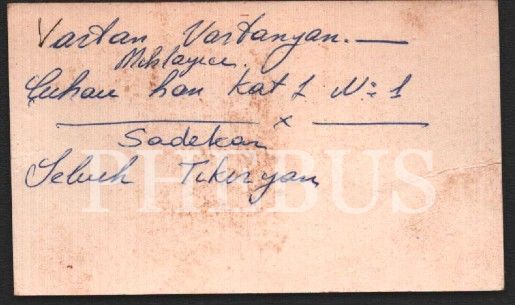 Vartan Vartanyan. —
Mıhlayıcı.
Çuhacı han kat 1 No: 1
x
Sadekar
Sebuh Tikiryan
PHEBUS